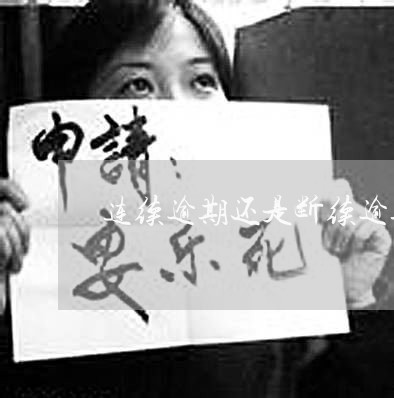 申請：
连续逾期还是断续逾
安乐死